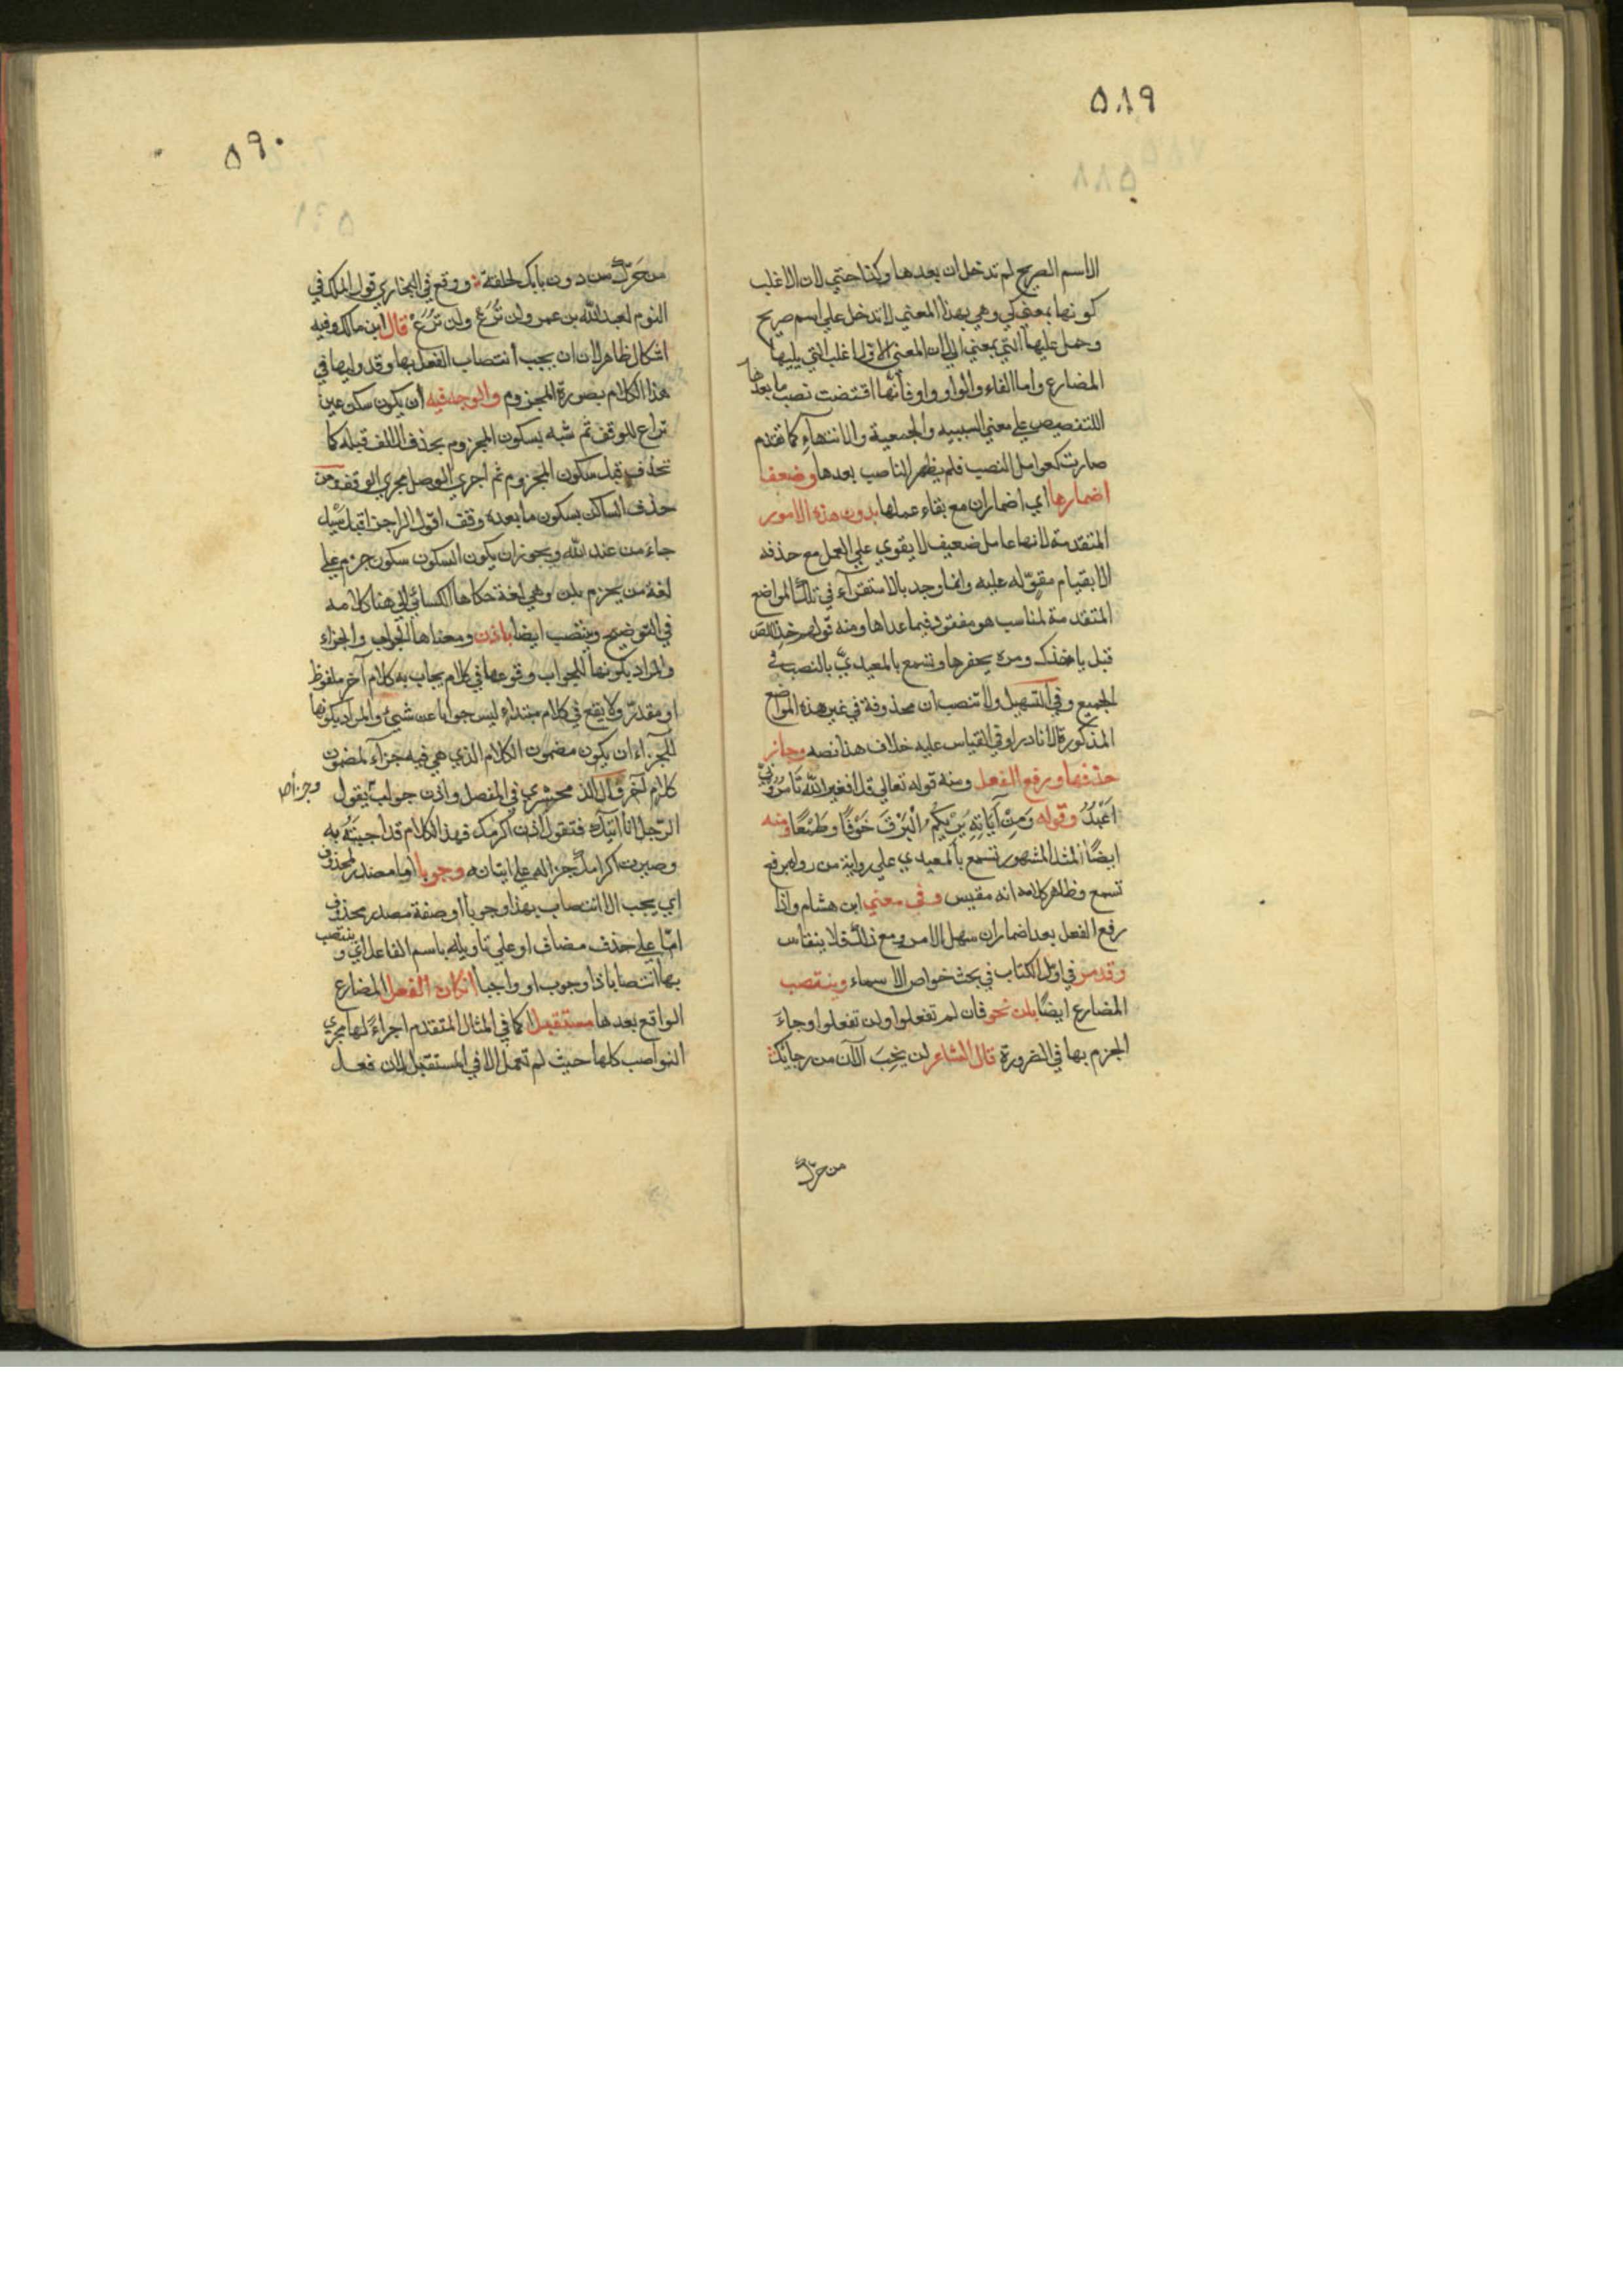 ٥٨٩
الاسم الصريح لم تدخل ان بعدها وكذا حتي لان الاغلب
كونها بمعني كي وهي بهذا المعني لا تدخل علي اسم صريح
وحمل عليها التي بمعني الي لان المعني الاول اغلب التي يليها
المضارع واما الفاء والواو واو فأنها اقتضت نصب ما بعدها
للتنصيص علي معني السببيه والجمعية والانتهاء كما تقدم
صارت كعوامل النصب فلم يظهر الناصب بعدها وضعف
اضمارها اي اضمار ان مع بقاء عملها بدون هذه الامور
المتقدمة لانها عامل ضعيف لا يقوي علي العمل مع حذفه
الا بقيام مقوّ له عليه وانما وجد بالاستقرآء في تلك المواضع
المتقدمة لمناسب هو مفقود فيما عداها ومنه قولهم خذ اللص
قبل ياخذك ومره يحفرها وتسمع بالمعيديّ بالنصب في
الجميع وفي التسهيل ولا تنصب ان محذوفة في غير هذه المواضع
المذكورة الا نادرا وفي القياس عليه خلاف هذا نصه وجائز
حذفها ورفع الفعل ومنه قوله تعالي قل افغير الله تَأمُرُونِّي
اَعْبُدُ وقوله وَمِنْ آيَاتِهِ يُرِيكُمُ الْبَرْقَ خَوْفًا وطَمَعًا ومنه
ايضًا المثل المشهور تسمع بالمعيدي علي رواية من رواه برفع
تسمع وظاهر كلامه انه مقيس وفي مغني ابن هشام واذا
رفع الفعل بعد اضمار ان سهل الامر ومع ذلك فلا ينقاس
وقد مر في اول الكتاب في بحث خواص الاسماء وينتصب
المضارع ايضًا بلن نحو فان لم تفعلوا ولن تفعلوا وجاءَ
الجزم بها في الضرورة قال الشاعر لن يَخِبَ الآن من رجائك
من حرّك
٥٩٠
من حَرّكَ من دون بابك الحلقة ووقع في البخاري قول الملك في
النوم لعبد الله بن عمر ولن تُرَعْ ولن تُرَعْ قال ابن مالك وفيه
اشكال ظاهر لان ان يجب أنتصاب الفعل بها وقد وليها في
هذا الكلام بصورة المجزوم والوجه فيه أن يكون سكن عين
تراع للوقف ثم شبه بسكون المجزوم بحذف الالف قبله كما
تحذف قبل سكون المجزوم ثم اجري الوصل مجري الوقف ومن
حذف الساكن بسكون ما بعده وقف اقول الراجز اقبل سَيل
جاءَ من عند الله ويجوز ان يكون السكون سكون جزم علي
لغة من يجزم بلن وهي لغة حكاها الكسائي الي هنا كلامه
في التوضيح وينتصب ايضا باذن ومعناها الجواب والجزاء
والمراد بكونها للجواب وقوعها في كلام يجاب به كلام آخر ملفوظ
او مقدر ولا يقع في كلام مبتداء ليس جوابا عن شيئ والمراد بكونها
للجزآء ان يكون مضمون الكلام الذي هي فيه جزآء لمضمون
كلام آخر وقال الزمخشري في المفصل واذن جواب يقول
وجزاء
الرّجل انا آتيك فتقول اذن اكرمك فهذا الكلام قد اجبتَهُ به
وصيرت اكرامك جزاله علي اتيانه وجوبا اما مصدر لمحذوف
اي يجب الانتصاب بهذا وجوبا او صفة مصدر محذوف
امّا علي حذف مضاف او علي تاويله باسم الفاعل اي وينتصب
بها انتصابا ذا وجوب او واجبا انكان الفعل المضارع
الواقع بعدها مستقبلا كما في المثال المتقدم اجراءً لها مجري
النواصب كلها حيث لم تعمل الا في المستقبل لان فعل